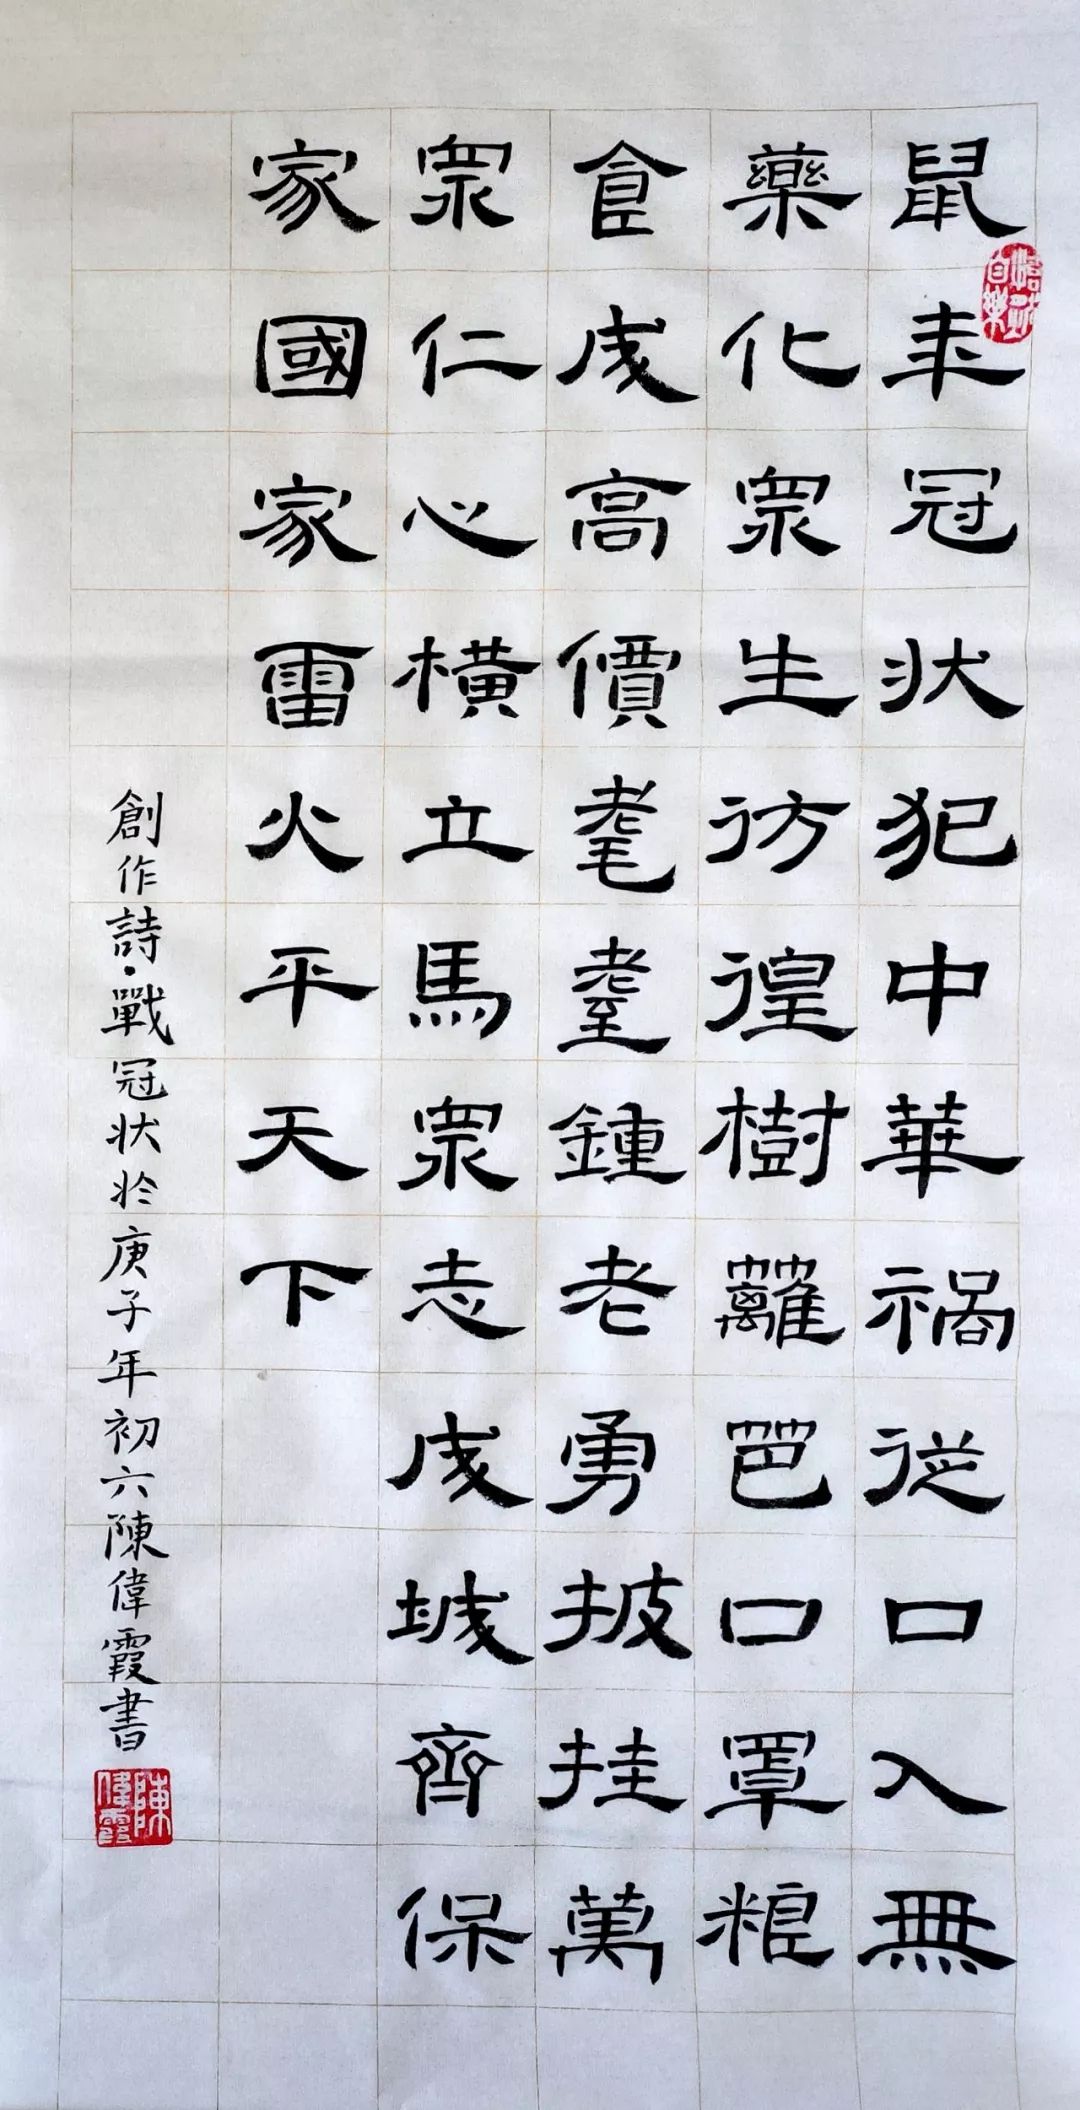 鼠年冠状犯中華禍從口入無
藥化衆生彷徨樹籬笆口罩粮
食成高價耄耋鍾老勇披挂萬
衆仁心橫立馬衆志成城齊保
家國家雷火平天下
創作詩·戰冠状於庚子年初六陳偉霞書
陳偉霞